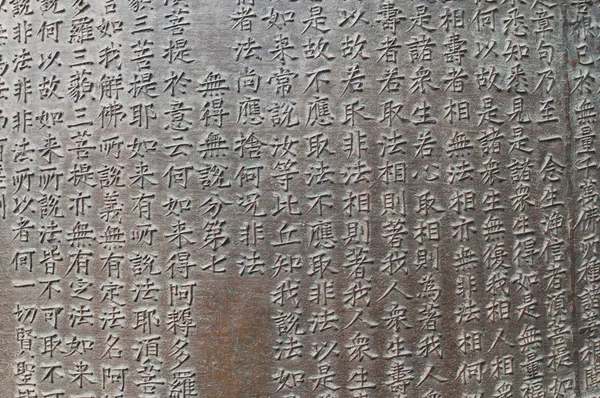 根已於無量千萬佛所種諸善根聞
是章句乃至一念生淨信者須菩提如
來悉知悉見是諸眾生得如是無量福
何以故是諸眾生無復我相人相眾
相壽者相無法相亦無非法相何
是諸眾生若心取相則為著我人眾
壽者若取法相則著我人眾生壽
以故若取非法相則著我人眾生
是故不應取法不應取非法以是
如來常說汝等比丘知我說法如
者法尚應捨何況非法
無得無說分第七
菩提於意云何如來得阿耨多羅
藐三菩提耶如來有所說法耶須菩
言如我解佛所說義無有定法名阿
多羅三藐三菩提亦無有定法如來
說何以故如來所說法皆不可取不可
說非法非非法所以者何一切賢聖皆